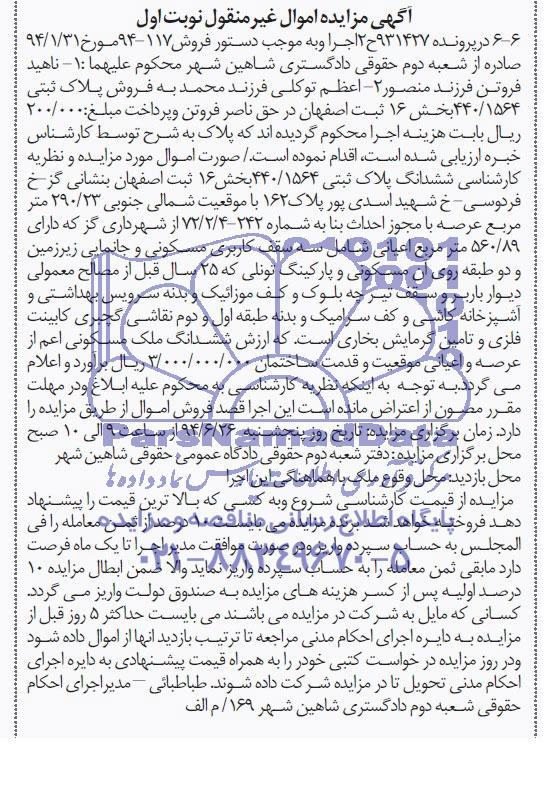 آگهی مزایده اموال غیر منقول نوبت اول
۶-۶ درپرونده ۹۳۱۴۲۷ح۲اجرا وبه موجب دستور فروش۱۱۷-۹۴مورخ۹۴/۱/۳۱
صادره از شعبه دوم حقوقی دادگستری شاهین شهر محکوم علیهما :۱- ناهید
فروتن فرزند منصور۲- اعظم توکلی فرزند محمد به فروش پلاک ثبتی
۴۴۰/۱۵۶۴بخش ۱۶ ثبت اصفهان در حق ناصر فروتن وپرداخت مبلغ:۲۰۰/۰۰۰
ریال بابت هزینه اجرا محکوم گردیده اند که پلاک به شرح توسط کارشناس
خبره ارزیابی شده است، اقدام نموده است./ صورت اموال مورد مزایده و نظریه
کارشناسی ششدانگ پلاک ثبتی ۴۴۰/۱۵۶۴بخش۱۶ ثبت اصفهان بنشانی گز-خ
فردوسی-خ شهید اسدی پور پلاک۱۶۲ با موقعیت شمالی جنوبی ۲۹۰/۲۳ متر
مربع عرصه با مجوز احداث بنا به شماره ۲۴۲-۷۲/۲/۴ از شهرداری گز که دارای
۵۶۰/۸۹ متر مربع اعیانی شامل سه سقف کاربری مسکونی و خانمایی زیرزمین
و دو طبقه روی آن مسکونی و پارکینگ تونلی که ۲۵ سال قبل از مصالح معمولی
دیوار باربر و سقف تیرچه بلوک و کف موزائیک و بدنه سرویس بهداشتی و
آشپزخانه کاشی و کف سرامیک و بدنه طبقه اول و دوم نقاشی گچبری کابینت
فلزی و تامین گرمایش بخاری است. که ارزش ششدانگ ملک مسکونی اعم از
عرصه و اعیانی موقعیت و قدمت ساختمان ۳/۰۰۰/۰۰۰/۰۰۰ ریال برآورد و اعلام
می گردد.به توجه به اینکه نظریه کارشناسی به محکوم علیه ابلاغ ودر مهلت
مقرر مصون از اعتراض مانده است این اجرا قصد فروش اموال از طریق مزایده را
دارد. زمان برگزاری مزایده: تاریخ روز پنجشنبه ۹۴/۶/۲۶ از ساعت ۹ الی ۱۰ صبح
محل برگزاری مزایده: دفتر شعبه دوم حقوقی دادگاه عمومی حقوقی شاهین شهر
محل بازدید: محل وقوع ملک با هماهنگی این اجرا
مزایده از قیمت کارشناسی شروع وبه کسی که بالا ترین قیمت را پیشنهاد
دهد فروخته خواهد شد. برنده مزایده می بایست ۱۰ درصد از ثمن معامله را فی
المجلس به حساب سپرده واریز ودر صورت موافقت مدیر اجرا تا یک ماه فرصت
دارد مابقی ثمن معامله را به حساب سپرده واریز نماید والا ضمن ابطال مزایده ۱۰
درصد اولیه پس از کسر هزینه های مزایده به صندوق دولت واریز می گردد.
کسانی که مایل به شرکت در مزایده می باشند می بایست حداکثر ۵ روز قبل از
مزایده به دایره اجرای احکام مدنی مراجعه تا ترتیب بازدید آنها از اموال داده شود
ودر روز مزایده در خواست کتبی خودر را به همراه قیمت پیشنهادی به دایره اجرای
احکام مدنی تحویل تا در مزایده شرکت داده شوند. طباطبائی – مدیراجرای احکام
حقوقی شعبه دوم دادگستری شاهین شهر ۱۶۹/ م الف
ParsNamadData
پایگاه اطلاع رسانی مناقصه و مزایده
۰۲۱-۸۸۳۴۹۶۷۰-۵